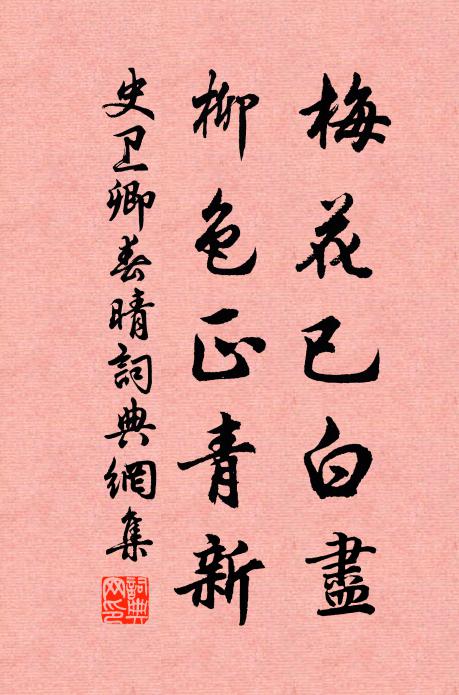 梅花已白盡
柳色正青新
史卫卿春晴詞典網集
詞典網印